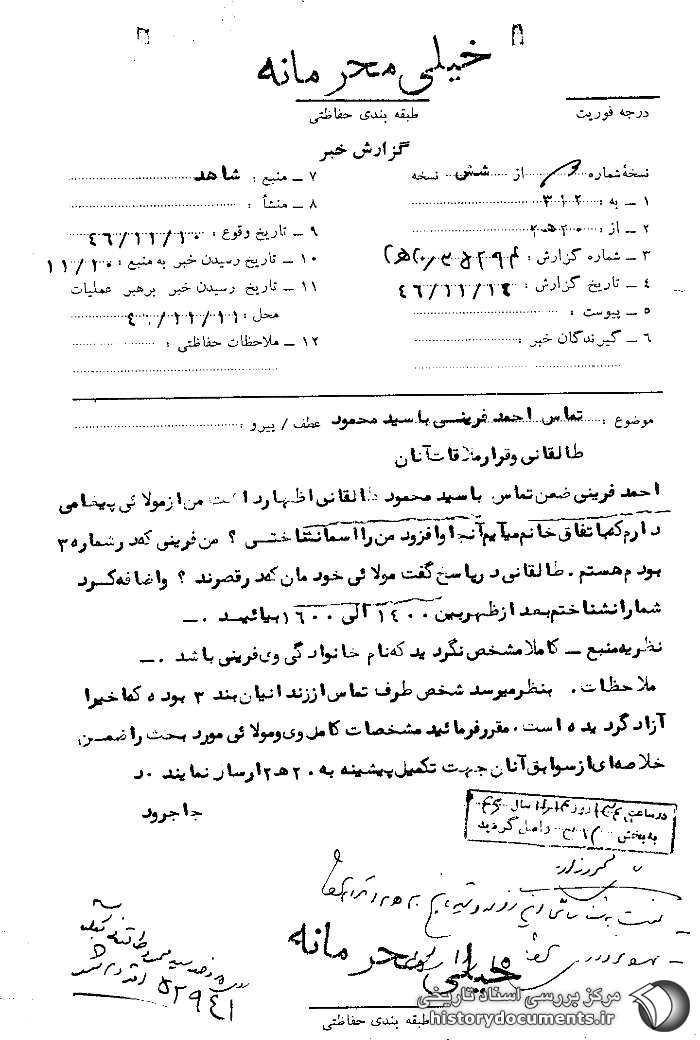 خیلی محرمانه
طبقه بندی حفاظتی
درجه فوریت
گزارش خبر
نسخهٔ شماره از شش نسخه
۱ ــ به : ۳۱۲
۲ ــ از : ۲۰ هـ ۲
۳ ــ شماره گزارش :
۴ ــ تاریخ گزارش : ۴۶/۱۱/۱۴
۵ ــ پیوست :
۶ ــ گیرندگان خبر :
۷ ــ منبع : شاهد
۸ ــ منشأ :
۹ ــ تاریخ وقوع : ۴۶/۱۱/۱۰
۱۰ ــ تاریخ رسیدن خبر به منبع : ۱۱/۱۰
۱۱ ــ تاریخ رسیدن خبر برهبر عملیات
محل : ۱۱/۱۱/
۱۲ ــ ملاحظات حفاظتی :
موضوع : تماس احمد فرینی با سید محمود عطف / پیرو :
طالقانی وقرارملاقات آنان
احمد فرینی ضمن تماس با سید محمود طالقانی اظهارداشت من ازمولائی پیغامی
دارم که باتفاق خانم میآیم آنجا وافزود من را اسما نشناختی ؟ من فرینی که درشماره ۳
بودم هستم . طالقانی درپاسخ گفت مولائی خودمان که درقصرند ؟ واضافه کرد
شما رانشناختم بعد ازظهر بین ۱۴۰۰ الی ۱۶۰۰ بیائید .ــ
نظریه منبع ــ کاملا مشخص نگردید که نام خانوادگی وی فرینی باشد .ــ
ملاحظات . بنظرمیرسد شخص طرف تماس اززندانیان بند ۳ بوده که اخیرا
آزاد گردیده است . مقررفرمائید مشخصات کامل وی ومولائی مورد بحث را ضمن
خلاصه ای ازسوابق آنان جهت تکمیل پیشینه به ۲۰ هـ ۲ ارسال نمایند . د
جاجرود
در ساعت روز سال
به بخش واصل گردید
خیلی محرمانه
۵۲۹۴۱
طبقه بندی حفاظتی
مرکز بررسی اسناد تاریخی
historydocuments.ir